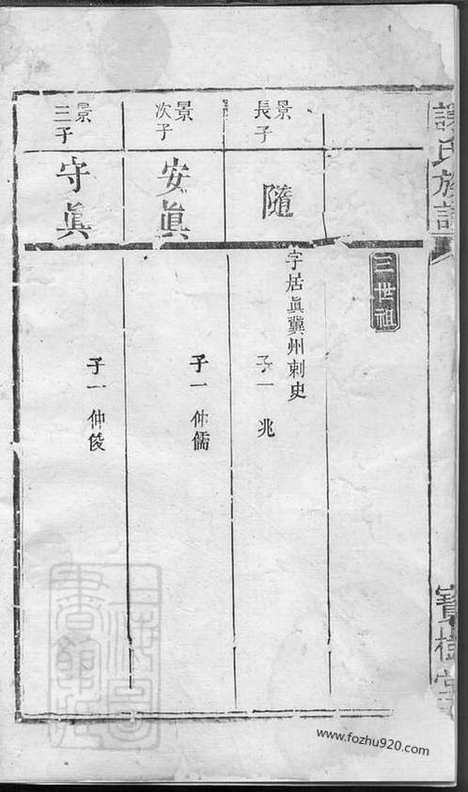 謝氏族譜
寶樹堂
三世祖
景長子
隨
字居眞冀州刺史
子一 兆
景次子
安眞
子一 仲儒
景三子
守眞
子一 仲倰
www.fozhu920.com